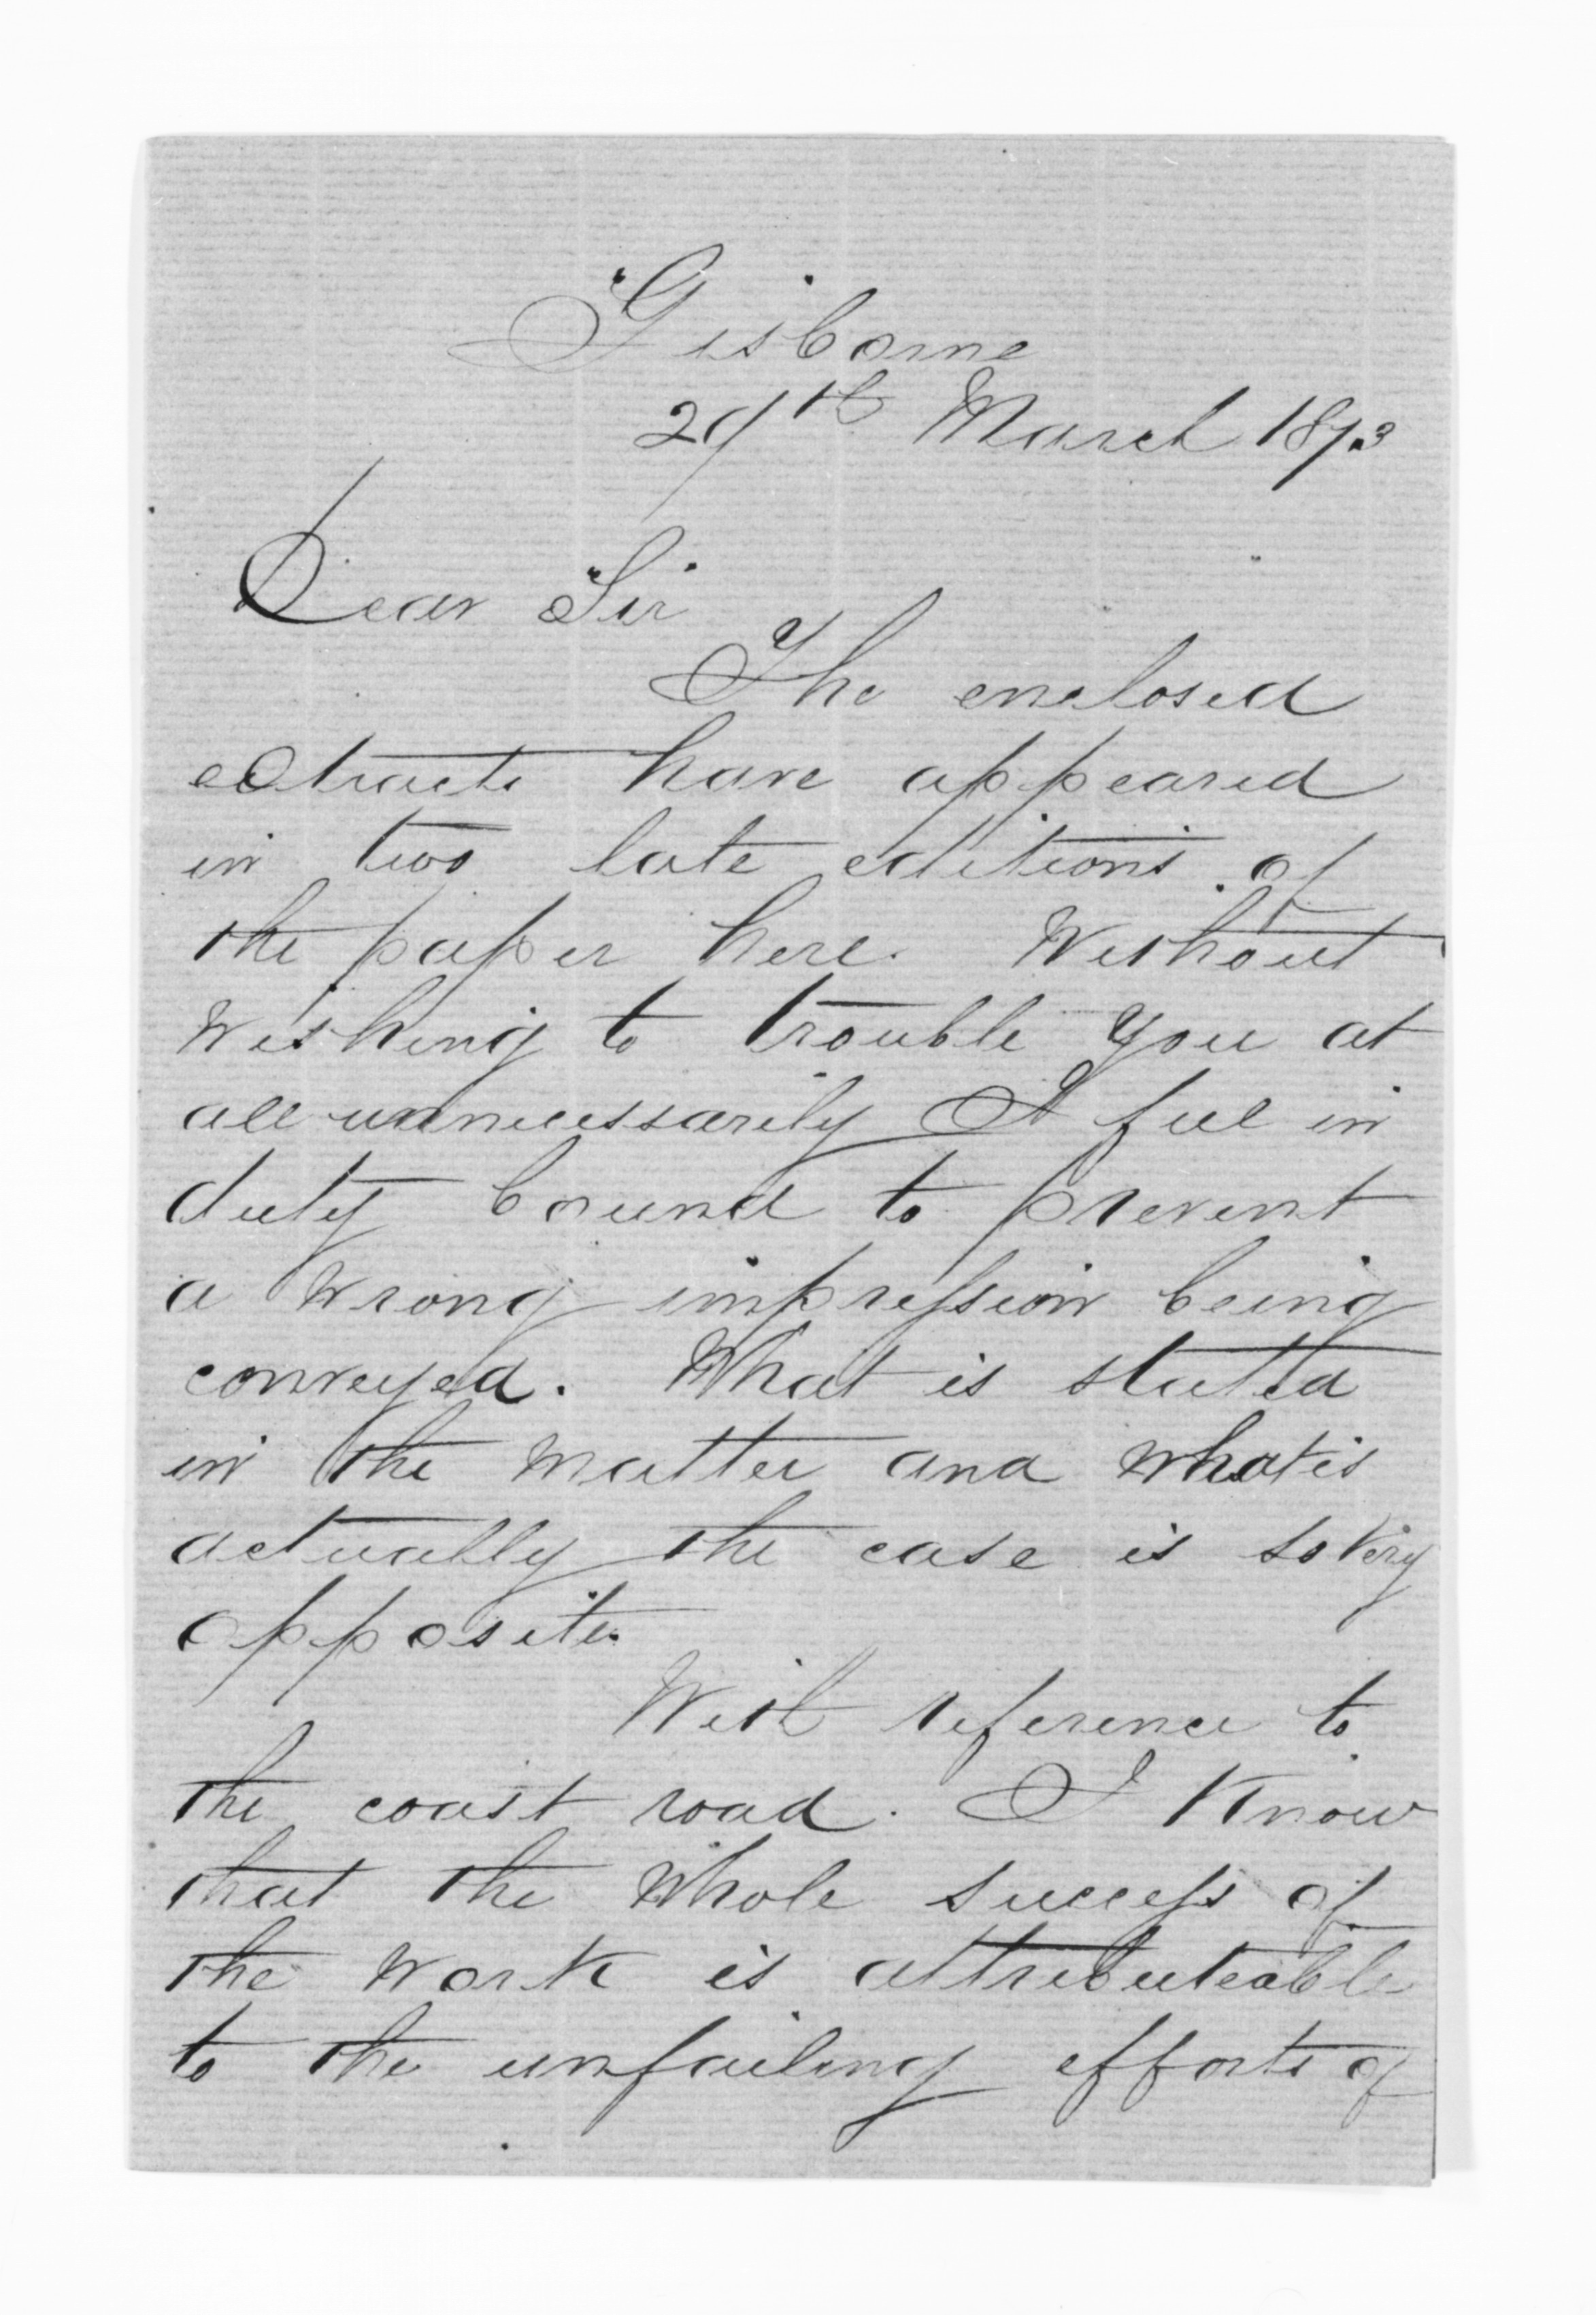 Gisborne
29th March 1873
Dear Sir
The enclosed
extracts have appeared
in two late editions of
the paper here. Without
wishing to trouble you at
all unnecessarily I feel in
duty bound to prevent
a wrong impression being
conveyed. What is stated
in the matter and what is
actually the case is so very
opposite.
With reference to
the coast road. I know
that the whole success of
the work is attributeable
to the unfailing efforts of